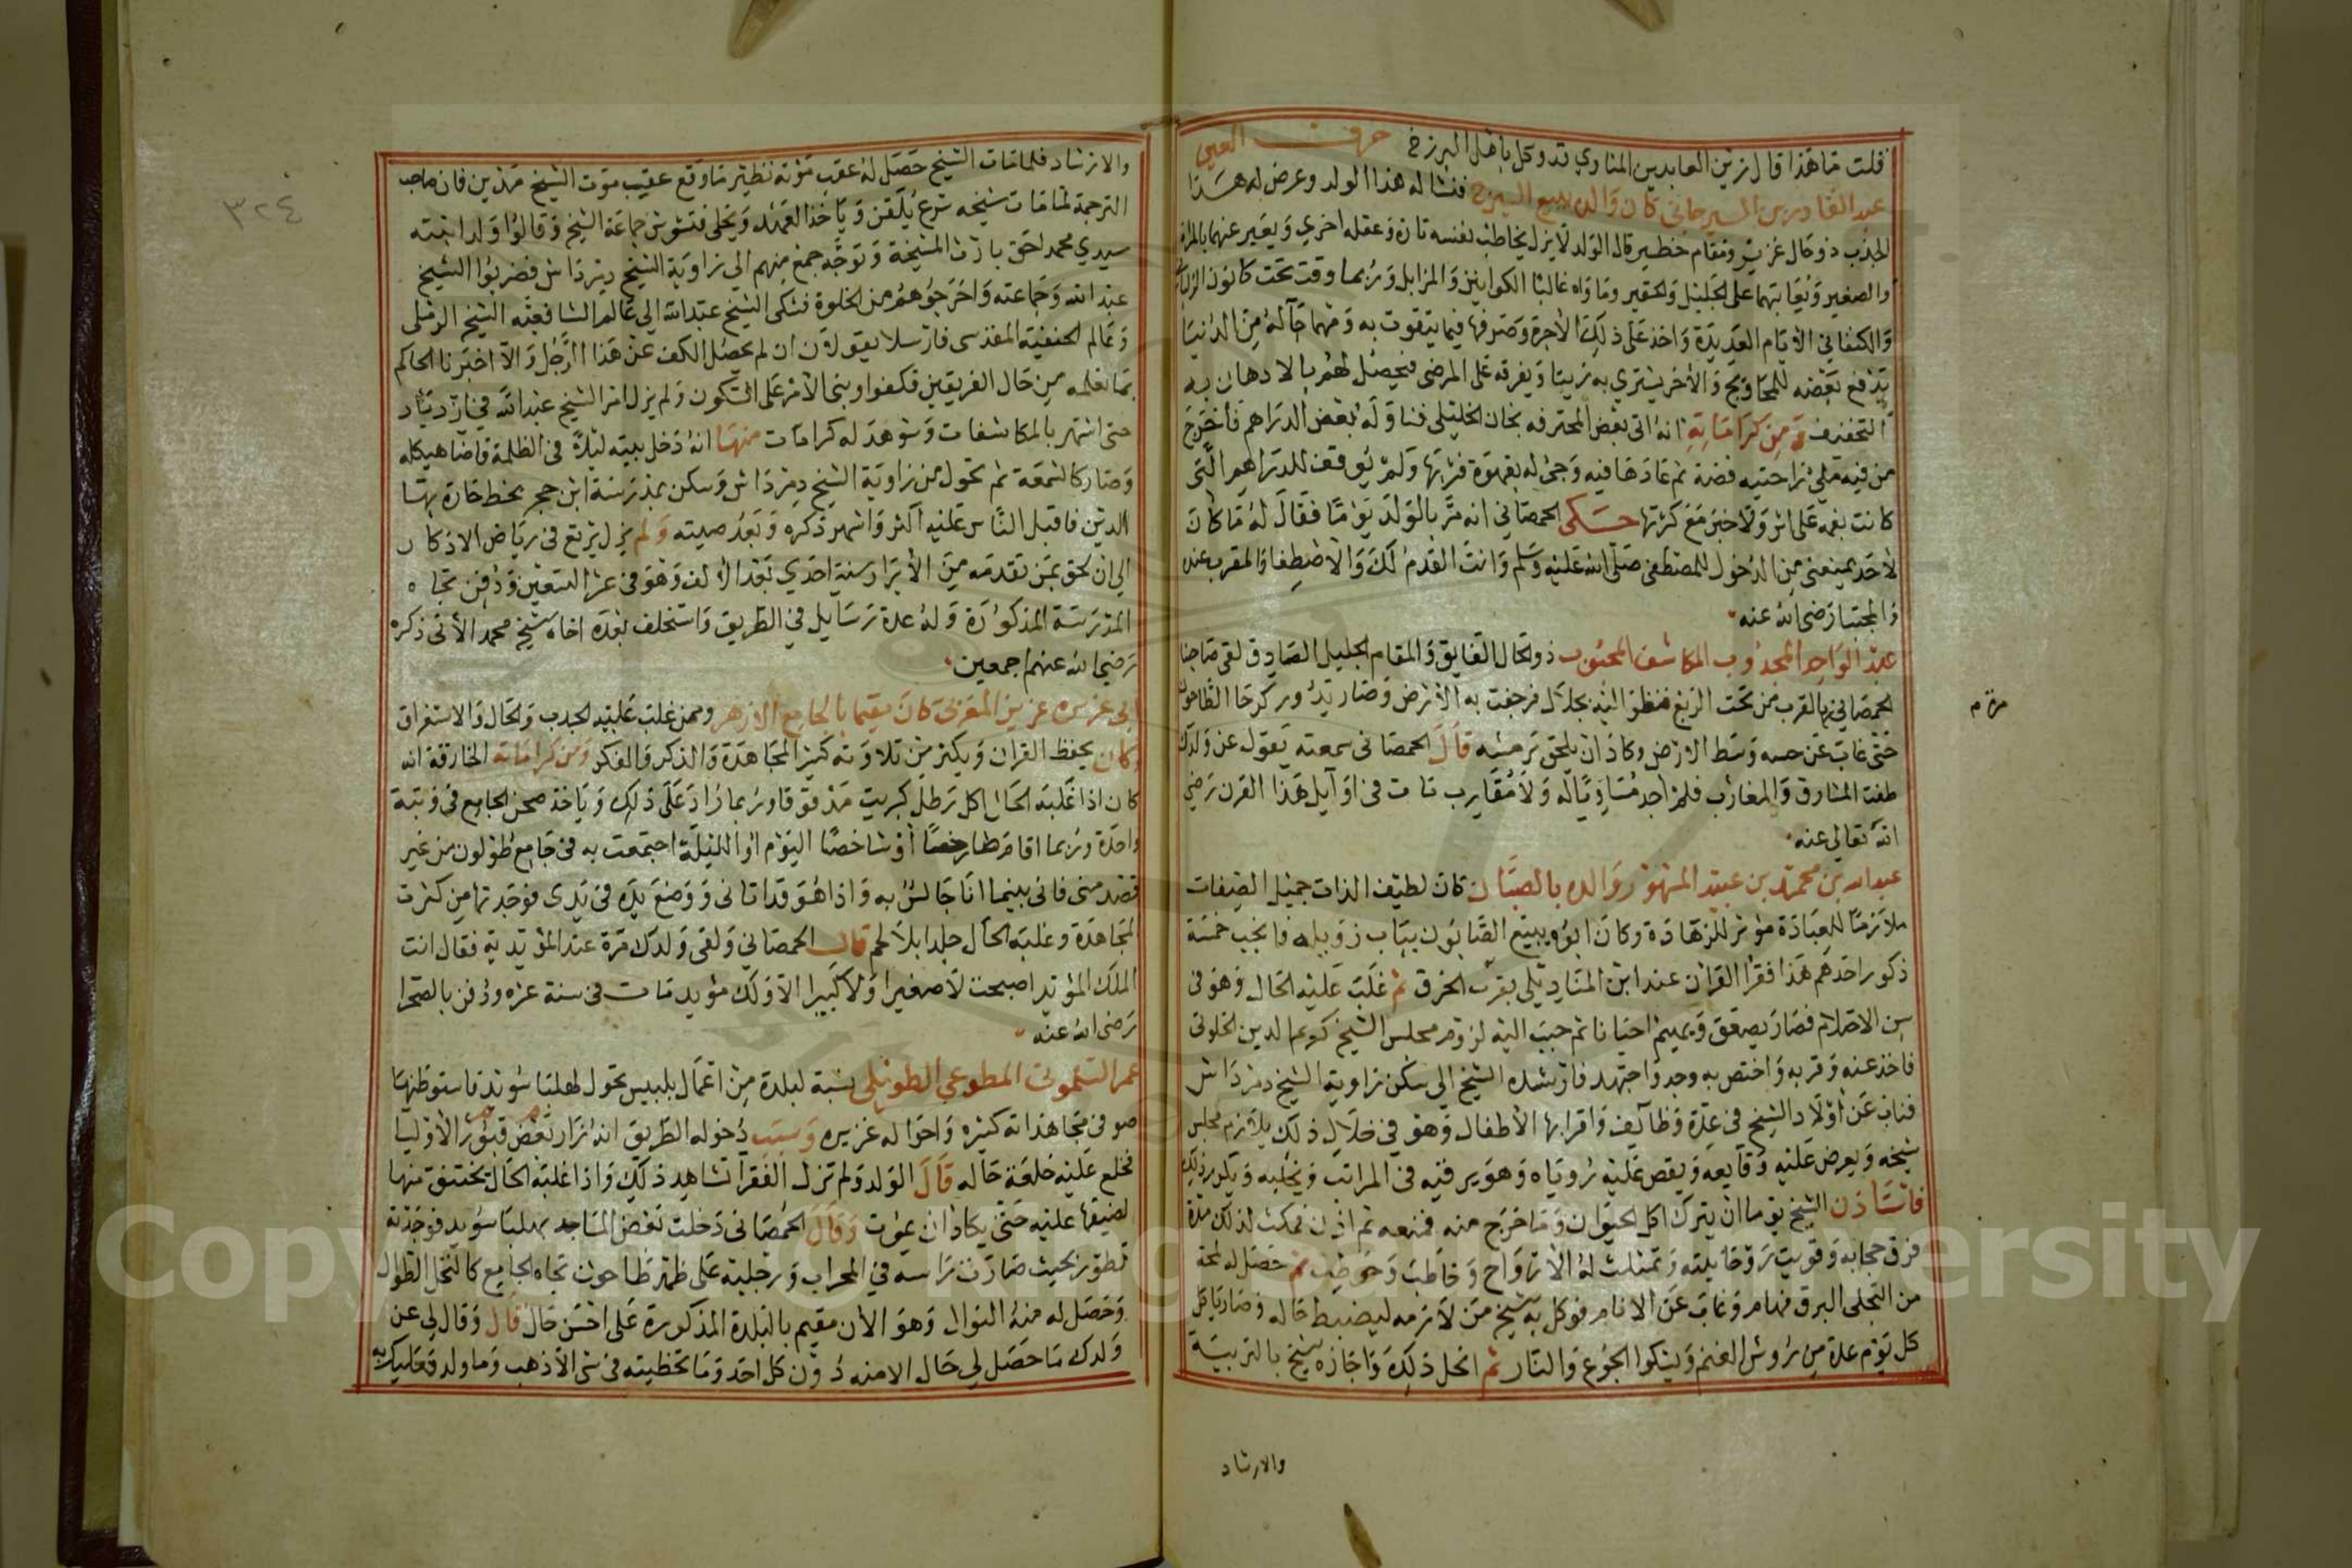 قلت ما هذا قال زين العابدين المناوي قد وكل باهل البرزخ حرف العين
عبد القادر بن السيرجاني كان والده يبيع السيرج فنشا له هذا الولد وعرض له هذا
الجذب ذو حال عزيز ومقام خطير قال الولد لا يزل يخاطب نفسه تارة وعقله اخري ويعبر عنهما بالمراة
والصغير ويعاتبهما على الجليل والحقير وماواه غالبا الكوانين والمزابل وربما وقت تحت كانون
والكنفاني الايام العديدة واخذ على ذلك الاجرة وصرفها فيما يتقوت به ومهما جآله من الدنيا
يدفع بعضه للمحاويج والاخر يشتري به زيتا ويفرقه على المرضى فيحصل لهم بالادهان به
التخفيف ومن كراماته انه اتى بعض المحترفه بخان الخليلي فناوله بعض الدراهم فاخرج
من فيه ملئ راحتيه فضة ثم عادها فيه وجئ له بقهوة فشربها ولم يوقف للدراهم التى
كانت بفمه على اثر ولا خبر مع كثرتها حكى الحمصاني انه مر بالولد يوما فقال له ما كان
لاحد يمنعنى من الدخول للمصطفى صلى الله عليه وسلم وانت القدم لك والاصطفا والمقرب عنده
والمجتبا رضى الله عنه
عبد الواحد المجذوب المكاشف المحبوب ذو الحال الفايق والمقام الجليل الصادق لقى صاحبنا
الحمصاني بالقرب من تحت الربع فنظر اليه بجلال فرجفت به الارض وصار يدور كرحا الطاحون
حتى غاب عن حسه وسط الارض وكاد ان يلحق برمسه قال الحمصانى سمعته يقول عن ولدك
طفت المشارق والمغارب فلم اجد مساويا له ولا مقارب مات فى اوآيل هذا القرن رضي
الله تعالى عنه
عبد الله بن محمد بن عبيد المشهور والده بالصبان كان لطيف الذات جميل الصفات
ملازما للعبادة مؤثر للزهادة وكان ابوه يبيع الصابون بباب زويله فانجب خمسة
ذكور احدهم هذا فقرا القران عند ابن المناديلى بقرب الخرق ثم غلب عليه الحال وهو فى
سن الاحتلام فصار يصعق ويهيم احيانا ثم حبب اليه لزوم مجلس الشيخ كريم الدين الخلوتى
فاخذ عنه وقربه واختص به وجد واجتهد فارشده الشيخ الى سكن زاوية الشيخ دمرداش
فناب عن اولاد الشيخ فى عدة وظآيف واقرا بها الاطفال وهو في خلال ذلك يلازم مجلس
شيخه ويعرض عليه وقايعه ويقص عليه روياه وهو يرقيه فى المراتب
فاستاذن الشيخ يوما ان يترك اكل الحيوان وما خرج منه فمنعه ثم اذن فمكث لذلك مدة
فرق حجابه وقويت روحانيته وتمثلت له الارواح وخاطب وخوطب ثم حصل له لمحة
من التجلى البرق فهام وغاب عن الانام فوكل به شيخ من لازمه ليضبط حاله وصار ياكل
كل يوم عدة من روش الغنم ويشكوا الجوع والنار ثم انحل ذلك واجازه شيخ بالتربية
والارشاد
والارشاد فلما مات الشيخ حصل له عقب موته نظير ما وقع عقيب موت الشيخ مدين فان صاحب
الترجمة لما مات شيخه شرع يلقن وياخذ العهد ويخلى فتشوش جماعة الشيخ وقالوا ولد ابنته
سيدي محمد احق بارث المشيخة وتوجه جمع منهم الي زاوية الشيخ دمرداش فضربوا الشيخ
عبد الله وجماعته واخرجوهم من الخلوة فشكى الشيخ عبد الله الي عالم الشافعية الشيخ الرملى
وعالم الحنفية المقدسى فارسلا يقولون ان لم يحصل الكف عن هذا الرجل والا اخبرنا الحاكم
بما نعلمه من حال الفريقين فكفوا وبنى الامر على السكون ولم يزل امر الشيخ عبد الله في ازدياد
حتى اشتهر بالمكاشفات وشوهد له كرامات منها انه دخل بيته ليلة فى الظلمة فاضا هيكله
وصار كالشمعة ثم تحول من زاوية الشيخ دمرداش وسكن بمدرسة ابن حجر بخط حارة بها
الدين فاقبل الناس عليه اكثر واشهر ذكره وبعد صيته ولم يزل يرتع فى رياض الاذكار
الي ان لحق بمن تقدمه من الابرار سنة احدي بعد الالف وهو فى عشر التسعين ودفن تجاه
المدرسة المذكورة وله عدة رسايل في الطريق واستخلف بعده اخاه شيخ محمد الاتى ذكره
رضي الله عنهم اجمعين
عزيز المغربى كان مقيما بالجامع الازهر وممن غلب عليه الجدب والحال والاستغراق
وكان يحفظ القران ويكثر من تلاوته كثير المجاهدة والذكر والفكر ومن كراماته الخارقة انه
كان اذا غلبه الحال اكل رطل كبريت مدقوقا وربما زاد على ذلك وياخذ صحن الجامع فى وثبة
واحدة وربما اقام طارخصا أو شاخصا اليوم او الليلة اجتمعت به فى جامع طولون من غير
قصد منى فانى بينما انا جالس به واذا هو قد اتانى ووضع يده فى يدى فوجدتها من كثرت
المجاهدة وغلبة الحال جلدا بلا لحم قال الحمصاني ولقى ولدك مرة عند المؤيدية فقال انت
الملك المؤيد اصبحت لا صغيرا ولا كبيرا الا ولك مؤيد مات فى سنة عزه ودفن بالصحرا
رضى الله عنه
عمر السلمونى المطوعي الطويلى نسبة لبلدة من اعمال بلبيس تحول لهلبا سويد فاستوطنها
صوفى مجاهداته كثيره واحواله غزيره وسبب دخوله الطريق انه زار بعض قبور الاوليا
فخلع عليه خلعة حاله قال الولد ولم تزل الفقرا تشاهد ذلك واذا غلبه الحال يختنق منها
لضيقها عليه حتى يكاد ان يموت وقال الحمصانى دخلت بعض المساجد بهلبا سويد فوجدته
تطور بحيث صارت راسه في المحراب ورجليه على ظهر طاحون تجاه الجامع كالنخل الطوال
وحصل له منه النوال وهو الان مقيم بالبلدة المذكورة على احسن حال قال وقال لى عن
ولدك ما حصل لي حال الا منه دون كل احد وما تخطيته فى شئ الا ذهب وما ولد فعليك به
٣٢٤